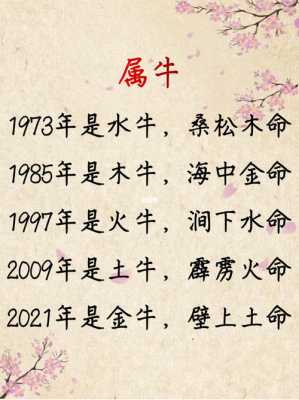 属牛
1973年是水牛，桑松木命
1985年是木牛，海中金命
1997年是火牛，涧下水命
2009年是土牛，霹雳火命
2021年是金牛，壁上土命